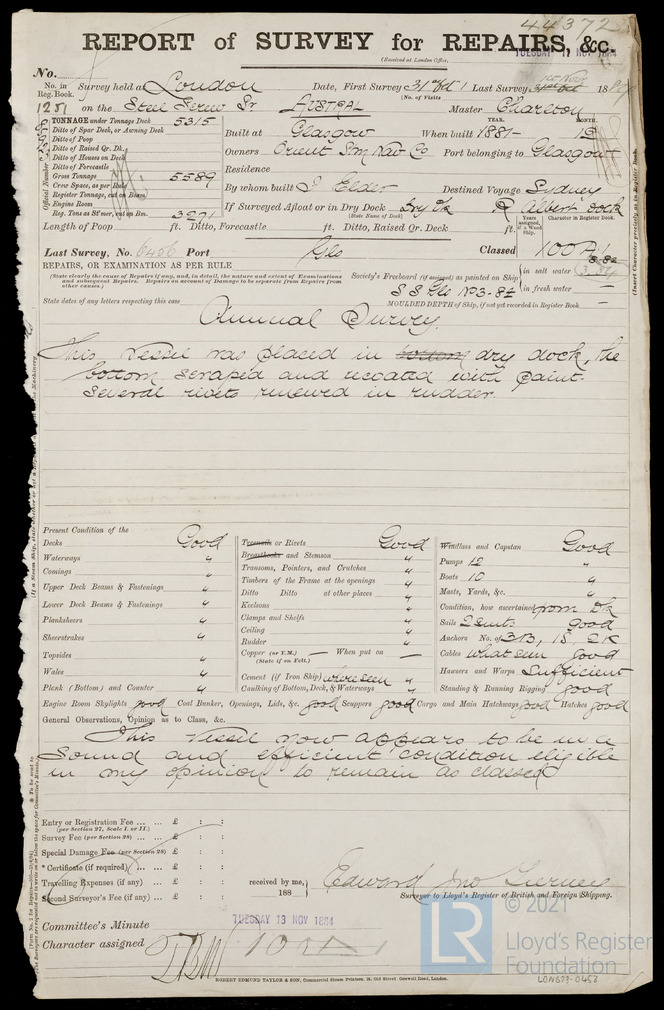 44372
REPORT of SURVEY for REPAIRS, &c.
(Received at London Office,
TUESDAY 11 NOV 1884
No.
No. in Reg. Book. Survey held at London Date, First Survey 31st Oct Last Survey, 188
(No. of Visits
1251 on the Steel Screw Sr AUSTRAL Master Charlton
TONNAGE under Tonnage Deck 5315
Ditto of Spar Deck, or Awning Deck
Ditto of Poop
Ditto of Raised Qr. Dk.
Ditto of Houses on Deck
Ditto of Forecastle
Gross Tonnage 5589
Crew Space, as per Rule
Register Tonnage, cut on Beam
Engine Room
Reg. Tons as St'mer, cut on Bm.
Official Number
YEAR. MONTH.
Built at Glasgow When built 1881-
Owners Orient Stm Nav Co Port belonging to Glasgow
Residence
By whom built J Elder Destined Voyage Sydney
If Surveyed Afloat or in Dry Dock Dry Dk R Albert Dock
(State Name of Dock)
Years assigned, if a Wood Ship.
Character in Register Book.
Length of Poop ft. Ditto, Forecastle ft. Ditto, Raised Qr. Deck ft.
Last Survey, No. 6456 Port Glo Classed 100A1
REPAIRS, OR EXAMINATION AS PER RULE
(State clearly the cause of Repairs if any, and, in detail, the nature and extent of Examinations and subsequent Repairs. Repairs on account of Damage to be separate from Repairs from other causes.)
Society's Freeboard (if assigned) as painted on Ship
in salt water
in fresh water —
SS Glo No3-84
State dates of any letters respecting this case
MOULDED DEPTH of Ship, (if not yet recorded in Register Book —
Annual Survey.
This Vessel was placed in bottom dry dock, the
bottom scraped and recoated with paint.
Several rivets renewed in rudder.
Present Condition of the
Decks Good
Waterways "
Comings "
Upper Deck Beams & Fastenings "
Lower Deck Beams & Fastenings "
Planksheers "
Sheerstrakes "
Topsides "
Wales "
Plank (Bottom) and Counter "
Treenails or Rivets Good
Breasthooks and Stemson "
Transoms, Pointers, and Crutches "
Timbers of the Frame at the openings "
Ditto Ditto at other places "
Keelsons "
Clamps and Shelfs "
Ceiling "
Rudder "
Copper (or Y.M.) — When put on —
(State if on Felt.)
Cement (if Iron Ship) where seen "
Caulking of Bottom, Deck, & Waterways "
Windlass and Capstan Good
Pumps 12 "
Boats 10 "
Masts, Yards, &c. "
Condition, how ascertained from Dk
Sails 2 suits good
Anchors No. of 3B, 1S, 2K
Cables what seen good
Hawsers and Warps Sufficient
Standing & Running Rigging good
Engine Room Skylights good Coal Bunker, Openings, Lids, &c. good Scuppers good Cargo and Main Hatchways good Hatches good
General Observations, Opinion as to Class, &c.
This Vessel now appears to be in a
Sound and efficient condition eligible
in my opinion to remain as classed
Entry or Registration Fee ... ... £ : :
(per Section 27, Scale I. or II.)
Survey Fee (per Section 28) ... £ : :
Special Damage Fee (per Section 28) £ : :
* Certificate (if required) ... £ : :
Travelling Expenses (if any) ... £ : :
Second Surveyor's Fee (if any) ... £ : :
received by me,
188
Edward Jno Turner
Surveyor to Lloyd's Register of British and Foreign Shipping.
Committee's Minute TUESDAY 13 NOV 1884
Character assigned
ROBERT EDMUND TAYLOR & SON, Commercial Steam Printers, 19, Old Street, Goswell Road, London.
LR
© 2021
Lloyd's Register
Foundation
LON673-0453
(Insert Character precisely as in Register Book.